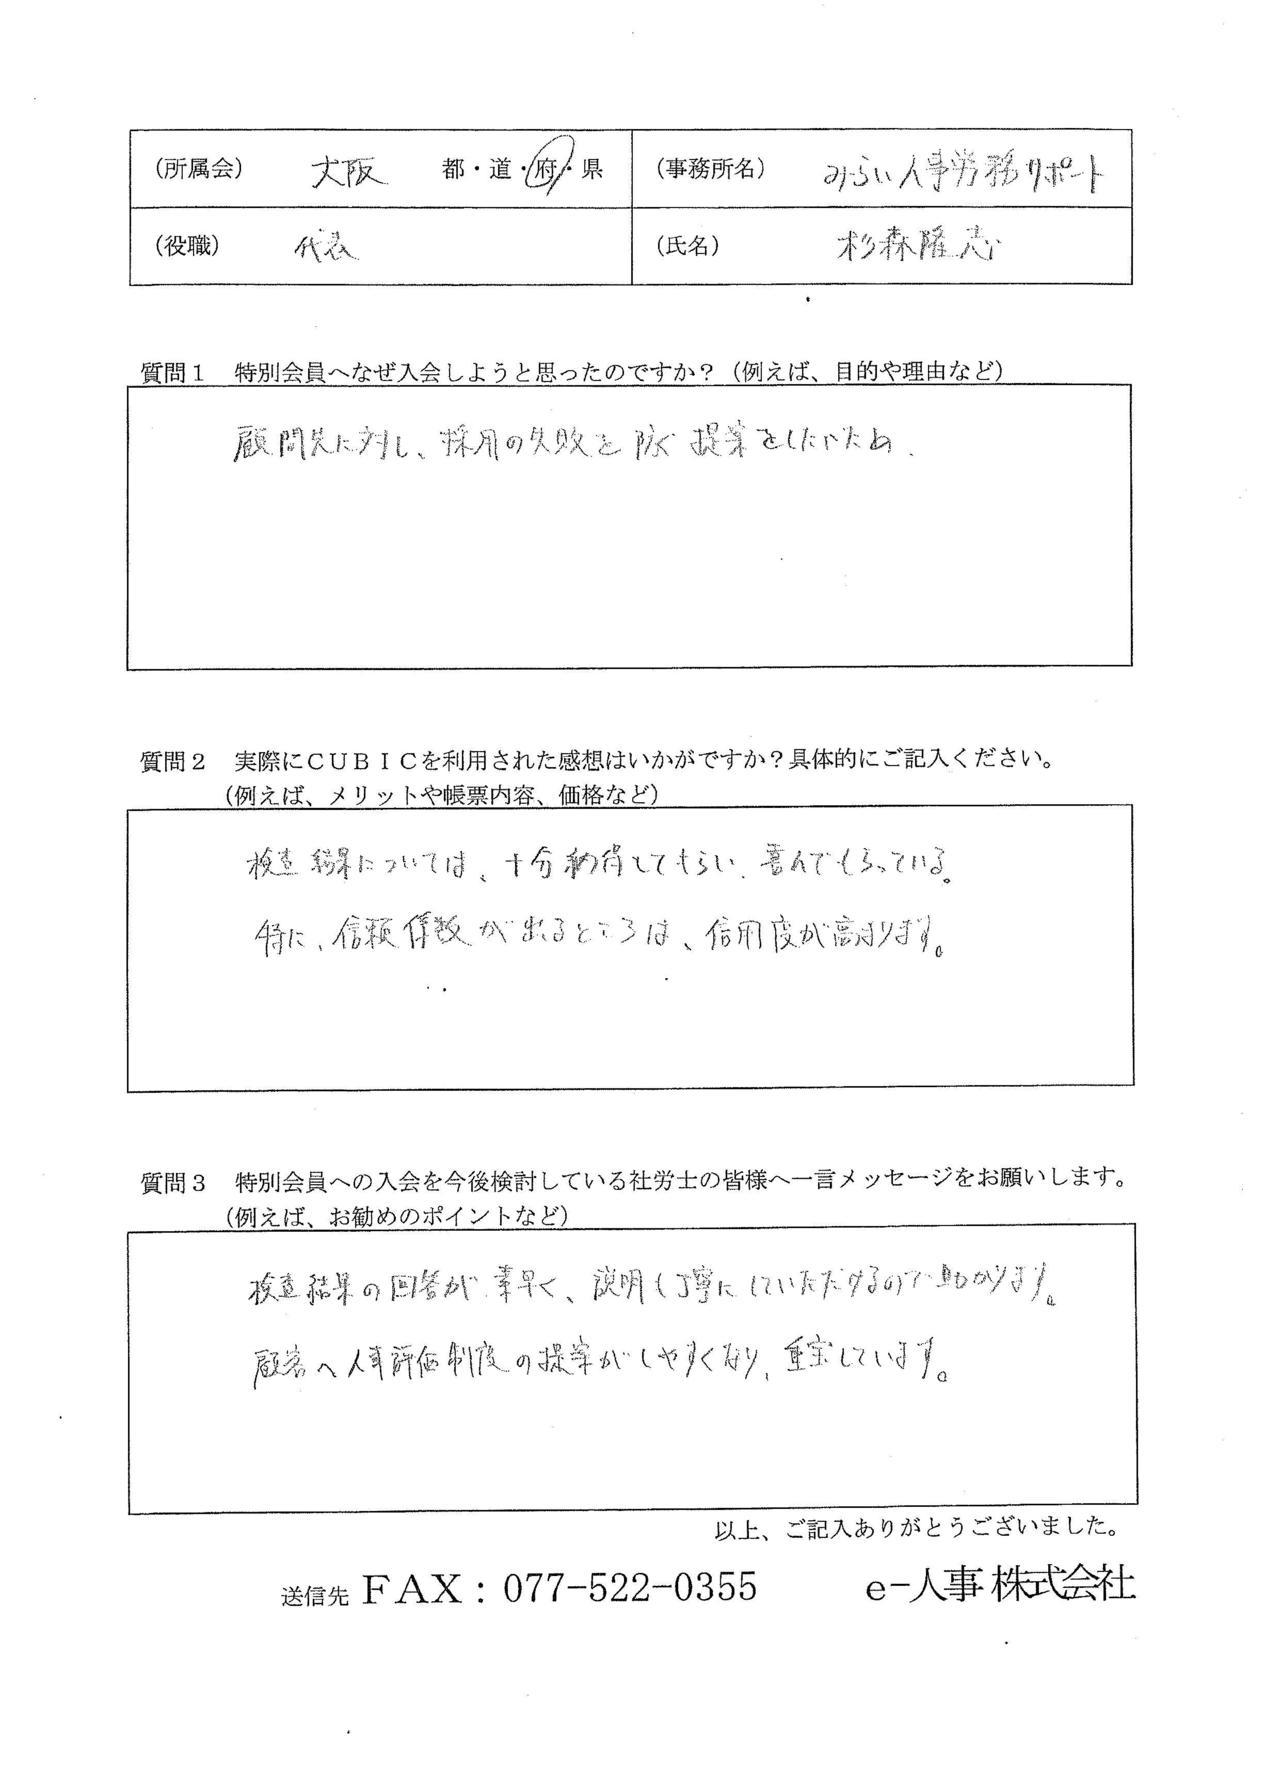 （所属会） 大阪 都・道・府・県 （事務所名） みらい人事労務サポート
（役職） 代表 （氏名） 杉森隆志
質問１　特別会員へなぜ入会しようと思ったのですか？（例えば、目的や理由など）
顧問先に対し、採用の失敗を防ぐ提案をしたいため.
質問２　実際にＣＵＢＩＣを利用された感想はいかがですか？具体的にご記入ください。
（例えば、メリットや帳票内容、価格など）
検査結果については、十分納得してもらい、喜んでもらっている。
特に、信頼係数が出るところは、信用度が高まります。
質問３　特別会員への入会を今後検討している社労士の皆様へ一言メッセージをお願いします。
（例えば、お勧めのポイントなど）
検査結果の回答が素早く、説明も丁寧にしていただけるので助かります。
顧客へ人事評価制度の提案がしやすくなり、重宝しています。
以上、ご記入ありがとうございました。
送信先 ＦＡＸ：077-522-0355 e-人事 株式会社